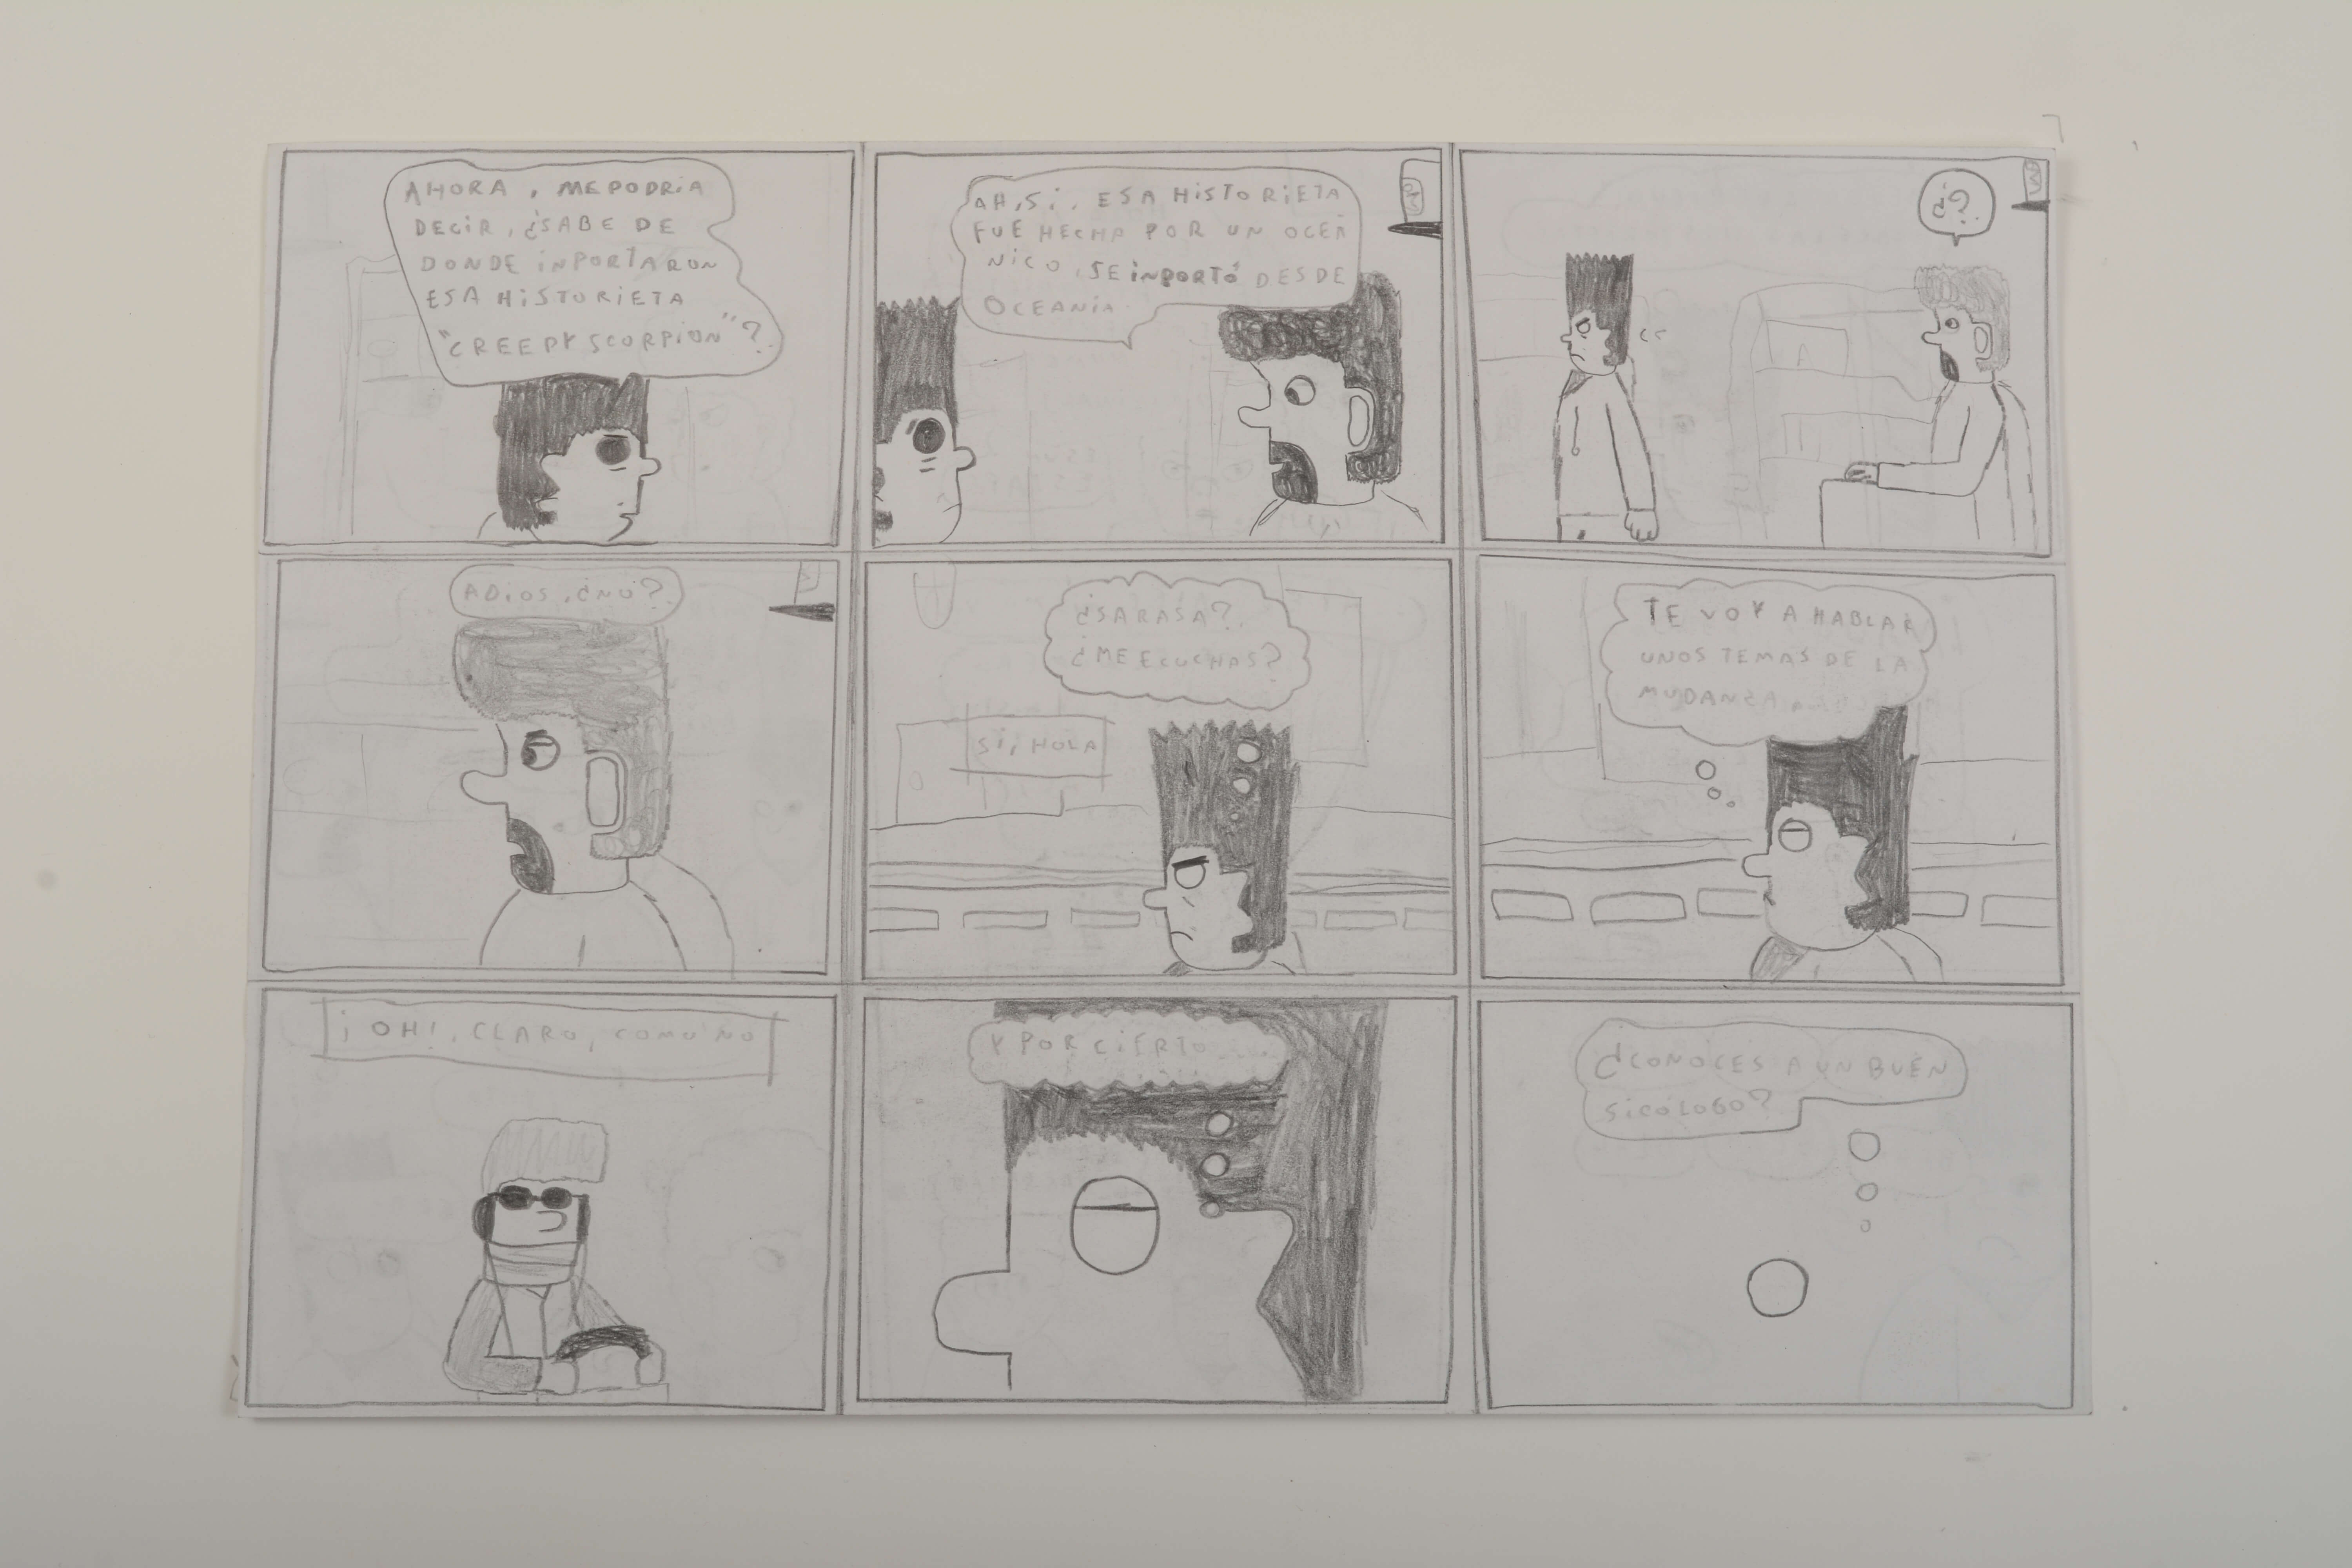 AHORA, ME PODRIA
DECIR, ¿SABE DE
DONDE INPORTARON
ESA HISTORIETA
"CREEPY SCORPION"?
AH, SI, ESA HISTORIETA
FUE HECHA POR UN OCEA
NICO, SE INPORTÓ DESDE
OCEANIA.
¿?
ADIOS, ¿NO?
¿SARASA?
¿ME ECUCHAS?
SI, HOLA
TE VOY A HABLAR
UNOS TEMAS DE LA
MUDANZA
¡OH!, CLARO, COMO NO
Y POR CIERTO....
¿CONOCES A UN BUEN
SICÓLOGO?